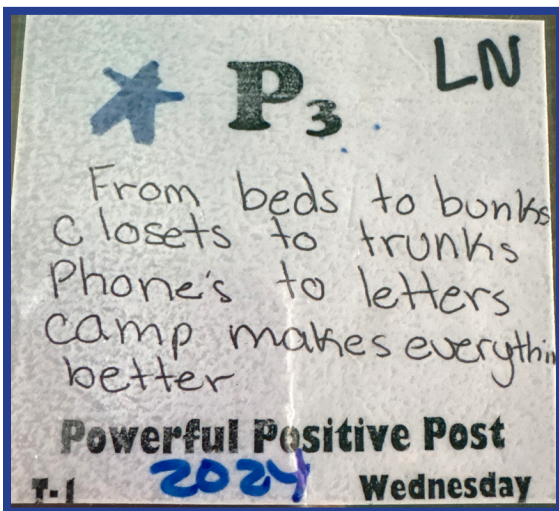 LN
P3
From beds to bunks
closets to trunks
Phone's to letters
camp makes everythin
better
Powerful Positive Post
2024
T-1 Wednesday